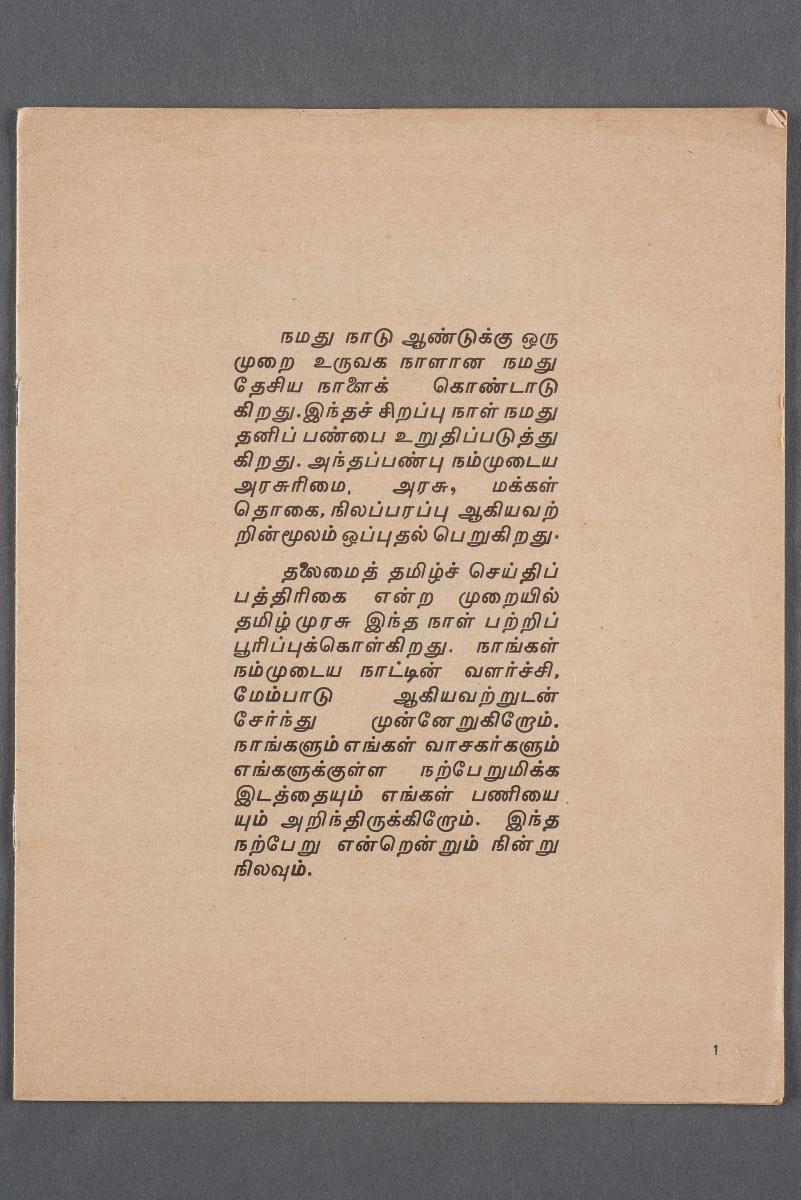 நமது நாடு ஆண்டுக்கு ஒரு
முறை உருவக நாளான நமது
தேசிய நாளைக் கொண்டாடு
கிறது.இந்தச் சிறப்பு நாள் நமது
தனிப் பண்பை உறுதிப்படுத்து
கிறது. அந்தப்பண்பு நம்முடைய
அரசுரிமை, அரசு, மக்கள்
தொகை, நிலப்பரப்பு ஆகியவற்
றின்மூலம் ஒப்புதல் பெறுகிறது.
தலைமைத் தமிழ்ச் செய்திப்
பத்திரிகை என்ற முறையில்
தமிழ் முரசு இந்த நாள் பற்றிப்
பூரிப்புக்கொள்கிறது. நாங்கள்
நம்முடைய நாட்டின் வளர்ச்சி,
மேம்பாடு ஆகியவற்றுடன்
சேர்ந்து முன்னேறுகிறோம்.
நாங்களும் எங்கள் வாசகர்களும்
எங்களுக்குள்ள நற்பேறுமிக்க
இடத்தையும் எங்கள் பணியை
யும் அறிந்திருக்கிறோம். இந்த
நற்பேறு என்றென்றும் நின்று
நிலவும்.
1